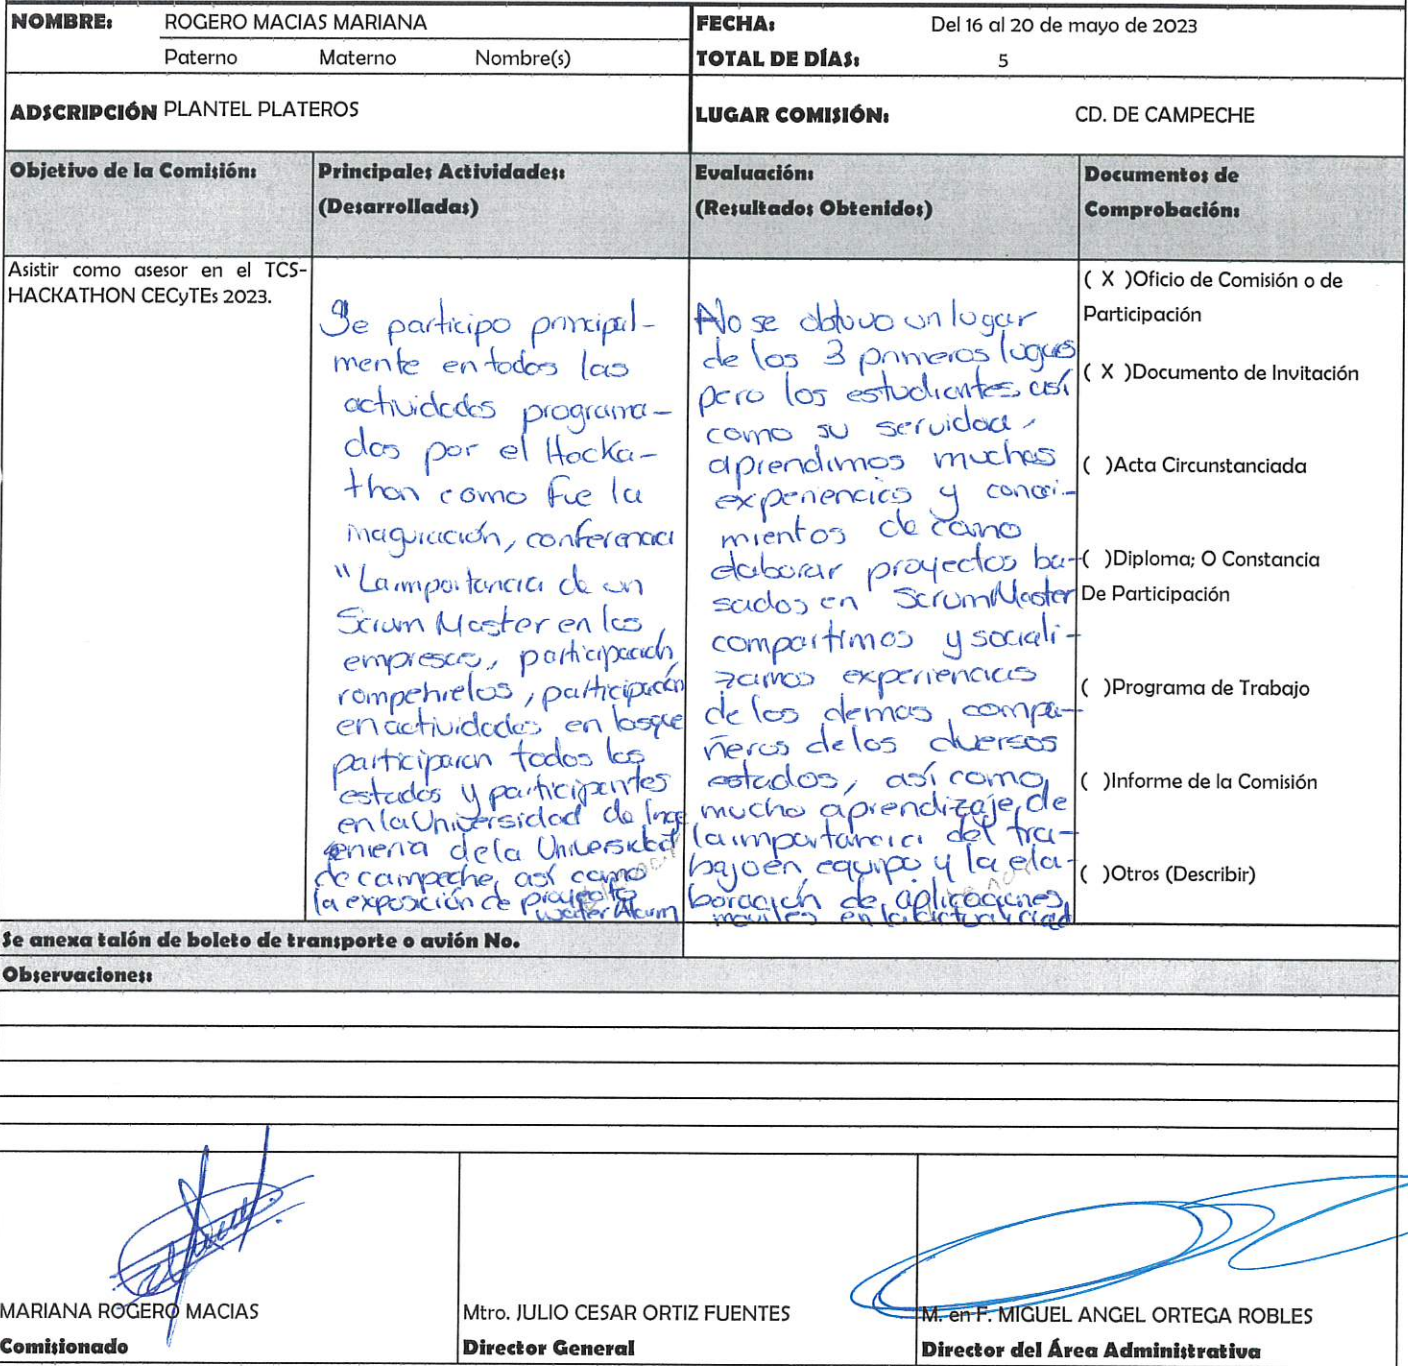 NOMBRE: ROGERO MACIAS MARIANA
Paterno Materno Nombre(s)
FECHA: Del 16 al 20 de mayo de 2023
TOTAL DE DÍAS: 5
ADSCRIPCIÓN PLANTEL PLATEROS
LUGAR COMISIÓN: CD. DE CAMPECHE
Objetivo de la Comisión:
Principales Actividades:
(Desarrolladas)
Evaluación:
(Resultados Obtenidos)
Documentos de
Comprobación:
Asistir como asesor en el TCS-
HACKATHON CECyTEs 2023.
Se participo principal-
mente en todas las
actividades programa-
das por el Hacka-
thon como fue la
inaguración, conferencia
"La importancia de un
Scrum Master en las
empresas, participación,
rompehielos, participación
en actividades en las que
participaron todos los
estados y participantes
en la Universidad de Inge
enieria de la Universidad
de campeche, así como
la exposición de proyecto
Water Alarm
No se obtuvo un lugar
de los 3 primeros lugares
pero los estudiantes así
como su servidora,
aprendimos muchas
experiencias y conoci-
mientos de como
elaborar proyectos ba-
sados en ScrumMaster
compartimos y sociali-
zamos experiencias
de los demas compa-
ñeros de los diversos
estados, así como,
mucho aprendizaje, de
la importancia del tra-
bajo en equipo y la ela-
boración de aplicaciones
moviles en la actualidad
( X )Oficio de Comisión o de
Participación
( X )Documento de Invitación
( )Acta Circunstanciada
( )Diploma; O Constancia
De Participación
( )Programa de Trabajo
( )Informe de la Comisión
( )Otros (Describir)
Se anexa talón de boleto de transporte o avión No.
Observaciones:
MARIANA ROGERO MACIAS
Comisionado
Mtro. JULIO CESAR ORTIZ FUENTES
Director General
M. en F. MIGUEL ANGEL ORTEGA ROBLES
Director del Área Administrativa